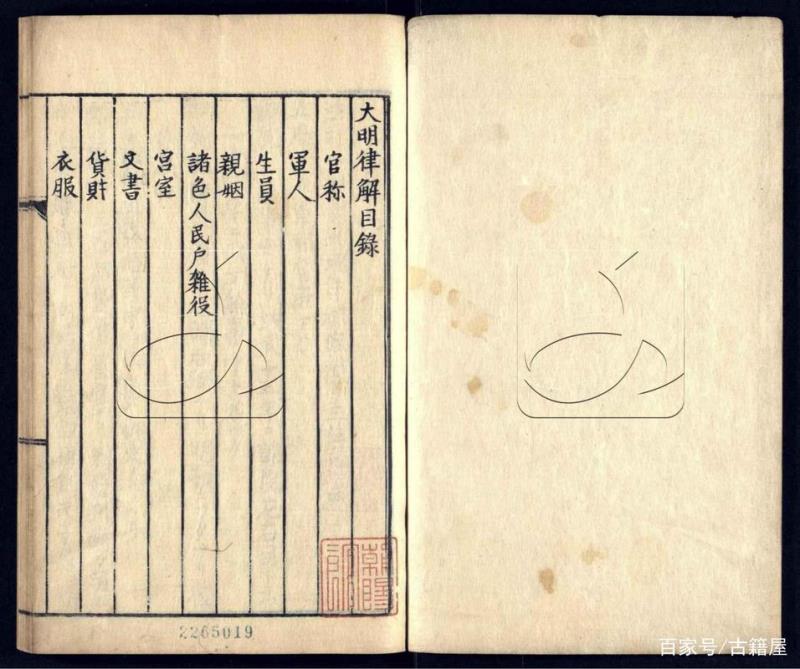 大明律解目錄
官称
軍人
生員
親姻
諸色人民户雜役
宫室
文書
貨財
衣服
2265019
百家号/古籍屋